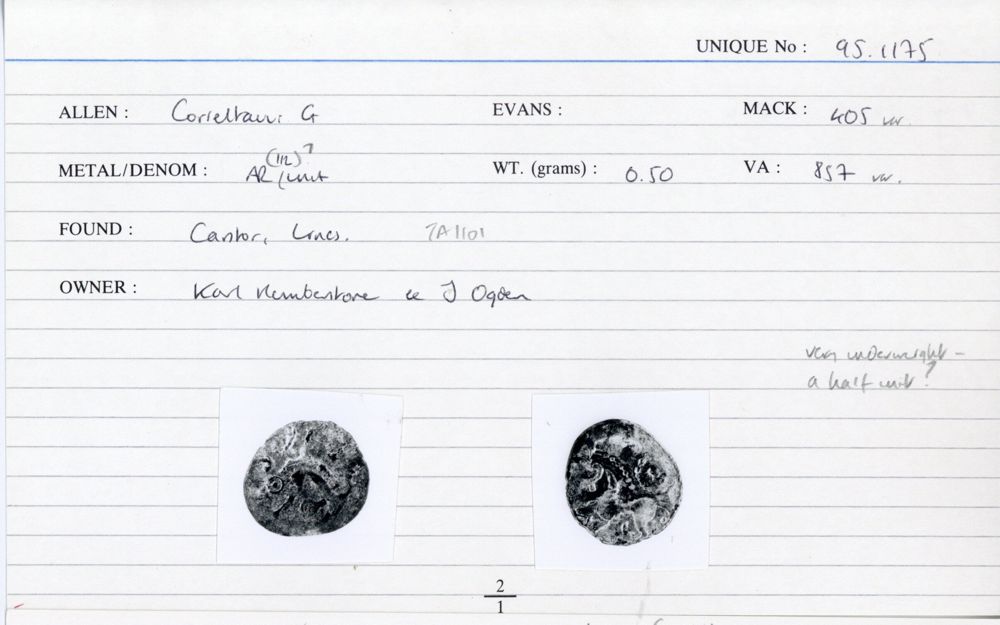 UNIQUE No : 95.1175
ALLEN : Corieltauvi G EVANS : MACK : 405 var.
(1/2)?
METAL/DENOM : AR/unit WT. (grams) : 0.50 VA : 857 var.
FOUND : Caistor, Lincs. TA1101
OWNER : Karl cc J Ogden
very underweight –
a half unit?
2
1